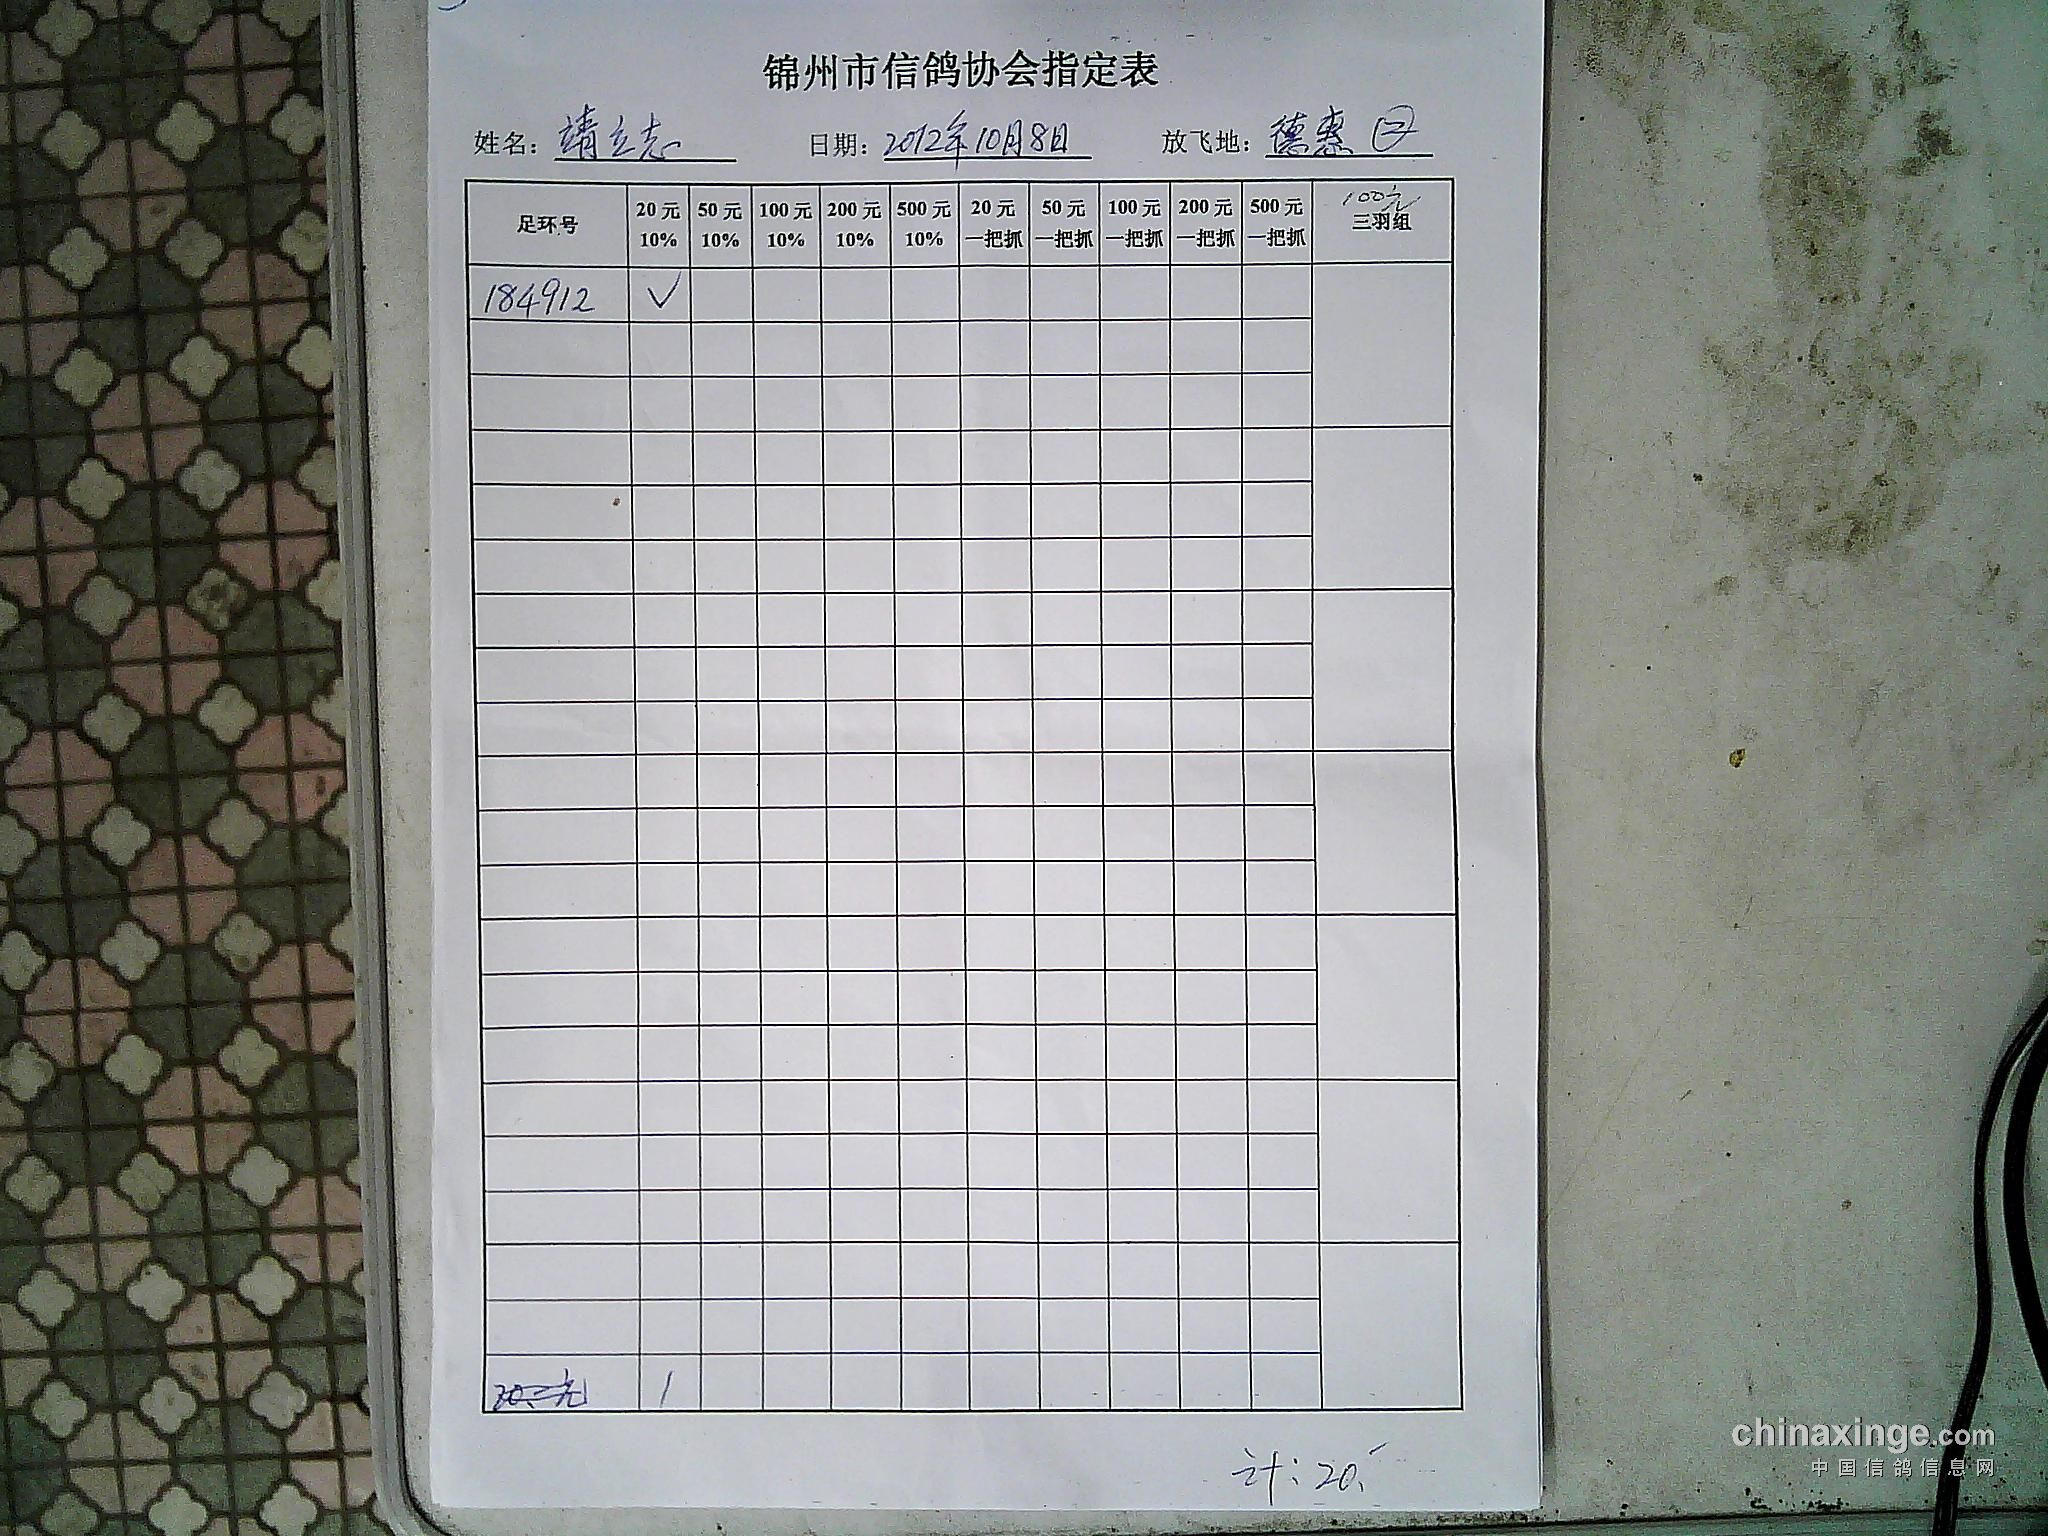 锦州市信鸽协会指定表
姓名: 靖立志 日期: 2012年10月8日 放飞地: 德惠 ②
足环号 20元 10% 50元 10% 100元 10% 200元 10% 500元 10% 20元 一把抓 50元 一把抓 100元 一把抓 200元 一把抓 500元 一把抓 100元 三羽组
184912 √
1
计: 20.
chinaxinge.com
中国信鸽信息网